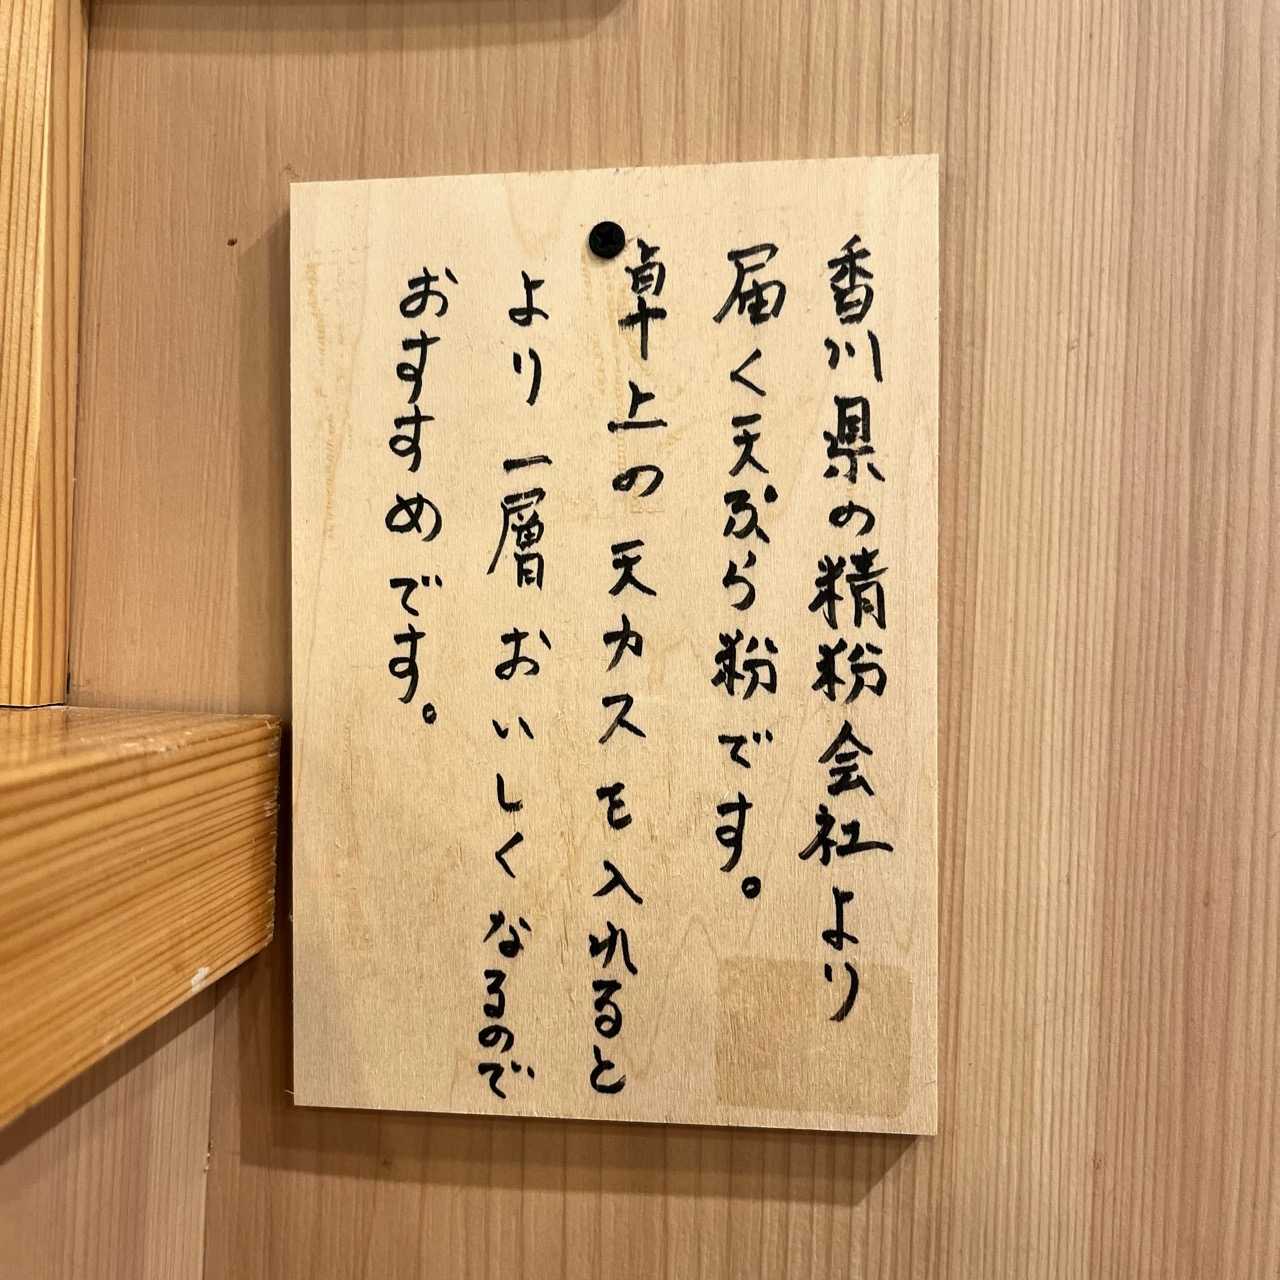 香川県の精粉会社より
届く天ぷら粉です。
卓上の天カスを入れると
より一層おいしくなるので
おすすめです。